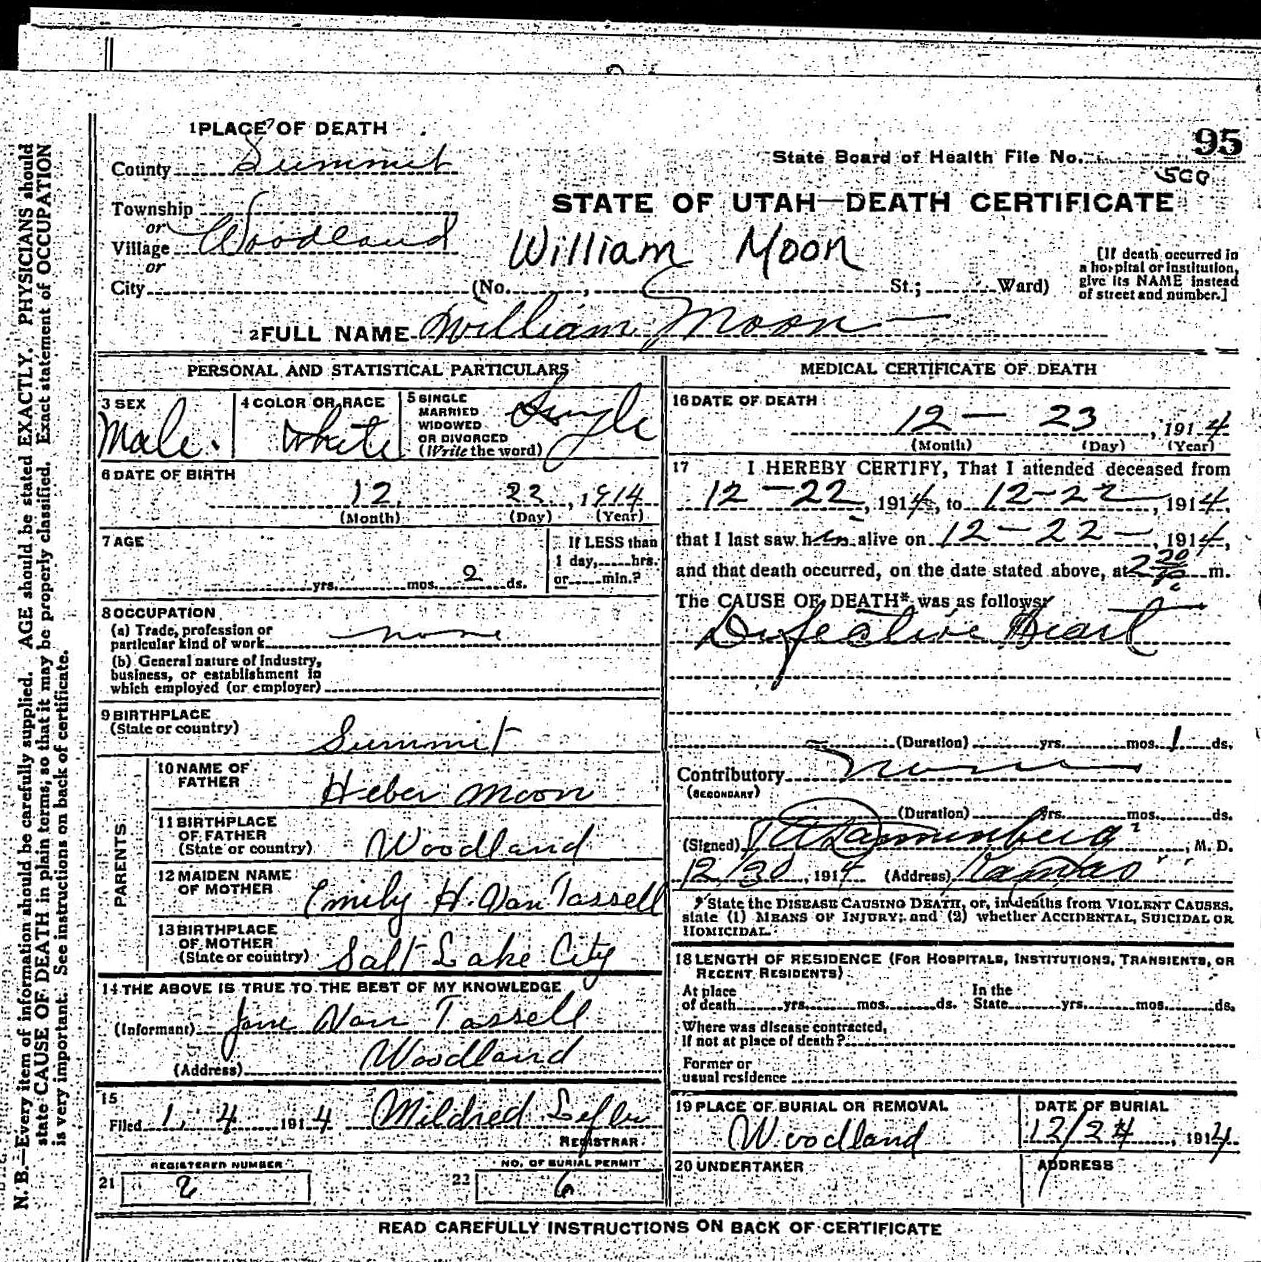 1 PLACE OF DEATH
County Summit
State Board of Health File No. 95
500
STATE OF UTAH—DEATH CERTIFICATE
Township
or
Village Woodland
or
City (No. , St.; Ward)
William Moon
[If death occurred in
a hospital or institution,
give its NAME instead
of street and number.]
2 FULL NAME William Moon
PERSONAL AND STATISTICAL PARTICULARS
3 SEX
Male.
4 COLOR OR RACE
White
5 SINGLE
MARRIED
WIDOWED
OR DIVORCED
(Write the word)
Single
6 DATE OF BIRTH
12 22, 1914
(Month) (Day) (Year)
7 AGE
yrs. mos. 2 ds.
If LESS than
1 day, hrs.
or min.?
8 OCCUPATION
(a) Trade, profession or
particular kind of work none
(b) General nature of Industry,
business, or establishment in
which employed (or employer)
9 BIRTHPLACE
(State or country) Summit
PARENTS
10 NAME OF
FATHER Heber Moon
11 BIRTHPLACE
OF FATHER
(State or country) Woodland
12 MAIDEN NAME
OF MOTHER Emily H. Van Tassell
13 BIRTHPLACE
OF MOTHER
(State or country) Salt Lake City
14 THE ABOVE IS TRUE TO THE BEST OF MY KNOWLEDGE
(Informant) Van Tassell
(Address) Woodland
15
Filed 1. 4 1914 Mildred
REGISTRAR
REGISTERED NUMBER
21 2
NO. OF BURIAL PERMIT
22 6
MEDICAL CERTIFICATE OF DEATH
16 DATE OF DEATH
12 — 23, 1914
(Month) (Day) (Year)
17 I HEREBY CERTIFY, That I attended deceased from
12-22, 1914, to 12-22, 1914,
that I last saw him alive on 12-22-, 1914,
and that death occurred, on the date stated above, at m.
The CAUSE OF DEATH* was as follows:
Defective Heart
(Duration) yrs. mos. 1 ds.
Contributory None
(SECONDARY)
(Duration) yrs. mos. ds.
(Signed) , M. D.
12/30, 1914 (Address) Kamas
*State the DISEASE CAUSING DEATH, or, in deaths from VIOLENT CAUSES,
state (1) MEANS OF INJURY; and (2) whether ACCIDENTAL, SUICIDAL OR
HOMICIDAL.
18 LENGTH OF RESIDENCE (FOR HOSPITALS, INSTITUTIONS, TRANSIENTS, OR
RECENT RESIDENTS)
At place In the
of death yrs. mos. ds. State yrs. mos. ds.
Where was disease contracted,
If not at place of death?
Former or
usual residence
19 PLACE OF BURIAL OR REMOVAL
Woodland
DATE OF BURIAL
12/24, 1914
20 UNDERTAKER
ADDRESS
READ CAREFULLY INSTRUCTIONS ON BACK OF CERTIFICATE
N. B.—Every item of information should be carefully supplied. AGE should be stated EXACTLY. PHYSICIANS should
state CAUSE OF DEATH in plain terms, so that it may be properly classified. Exact statement of OCCUPATION
is very important. See instructions on back of certificate.